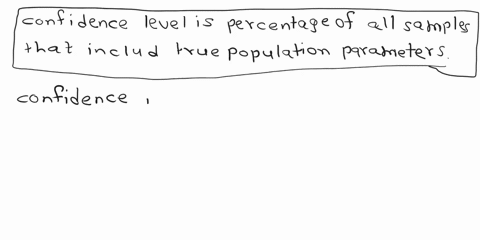 confidence level is percentage of all samples
that includ true population parameters.
confidence